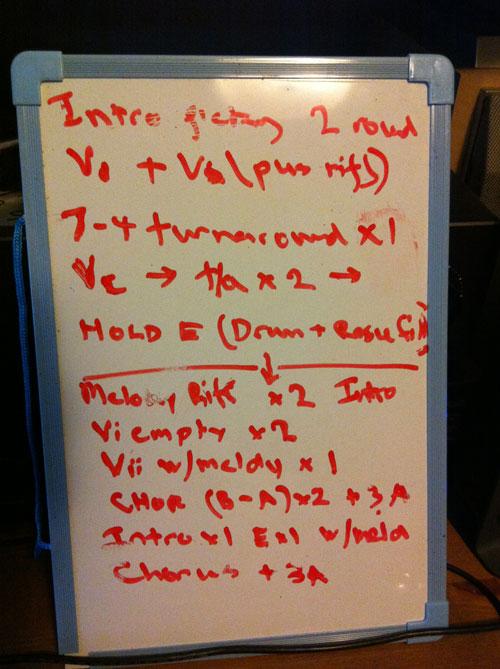 Intro 2 round
V1 + V2 (plus riffs)
7-4 turnaround x1
Vc → t/a x 2 →
HOLD E (Drum + Bass
Melody Riff x2 Intro
Vi empty x2
Vii w/meldy x 1
CHOR (B-A)x2 + 3A
Intro x1 E x1 w/melo
Chorus + 3A